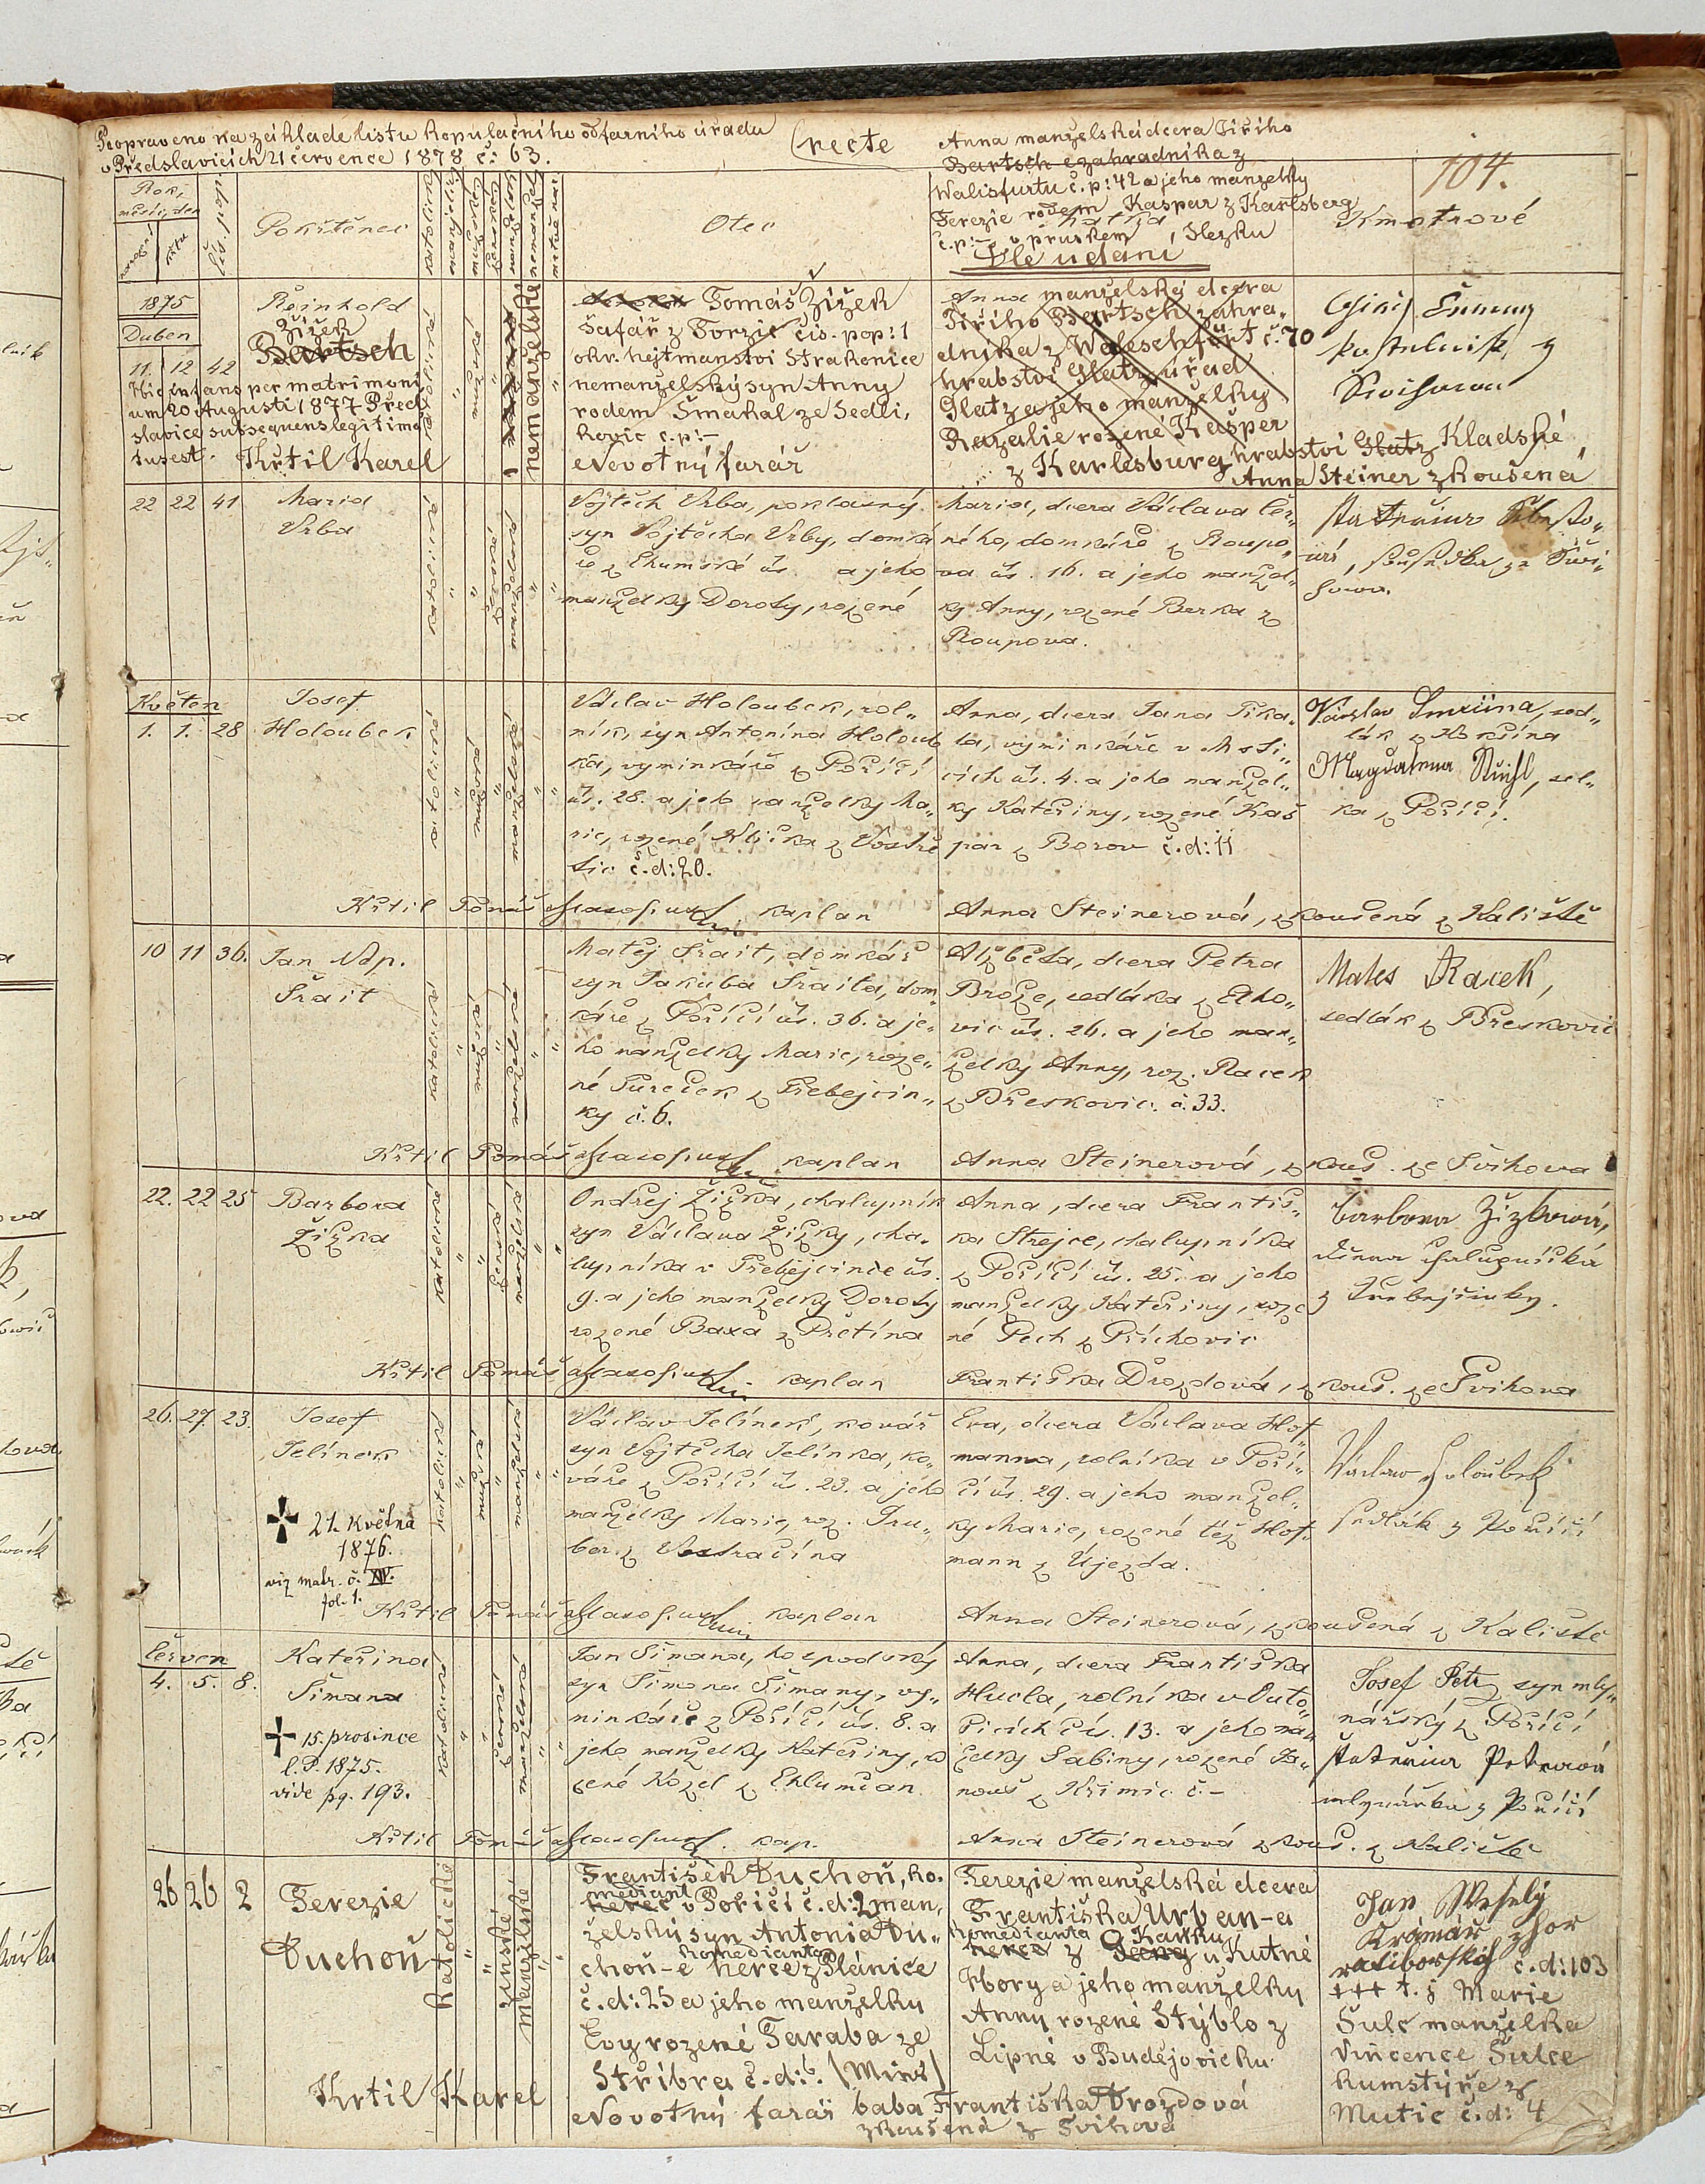 Poopraveno na základě listu kopulačního od farního úřadu
v Předslavicích 21 července 1878 č: 63.
(recte
Anna manželská dcera Jiřího
Bartsch e zahradníka z
Walisfurtu č.p: 42 a jeho manželky
Terezie rodem Kaspar z Karlsberg
č.p:- v pruském Slezku
Dle udání
104.
Rok, měsíc, den
narození
křtu
Číslo domu
Pokřtěnec
Otec
Matka
Kmotrové
1875
Duben
11. 12 42
Reinhold
Žižek
Bartsch
Hic infans per matrimoni
um 20 Augusti 1877 Před
slavice subsequens legitima
tus est.
Křtil Karel
katolické
mužské
nemanželské
Tomáš Žižek
šafář z Torzie čis. pop: 1
okr. hejtmanství Strakonice
nemanželský syn Anny
rodem Šmakal ze Sedli,
kovic c.p:-
Novotný farář
Anna manželská dcera
Jiřího Bartsch zahra,
dníka z Waleschfürt č. 70
hrabství Glatz úřad
Glatz a jeho manželky
Rozalie rozené Kašper
z Karlesburg hrabství Glatz Kladské
Anna Steiner zkoušená
22 22 41
Maria
Vrba
katolické
ženské
manželské
Vojtěch Vrba, poklasný
syn Vojtěcha Vrby, domká
ře z Chumské čís. a jeho
manželky Doroty, rozené
Maria, dcera Václava Čer„
ného, domkáře z Roupo„
va čís. 16. a jeho manžel„
ky Anny, rozené Berka z
Roupova.
Květen
1. 1. 28
Josef
Holoubek
katolické
mužské
manželské
Václav Holoubek, rol„
ník, syn Antonína Holoub
ka, vyminkáře z Poříčí
čís. 28. a jeho manželky Ma„
rie, rozené Klička z Vostře
tic č.d: 20.
Anna, dcera Jana Pika„
la, vyminkáře v Msti„
cích čís. 4. a jeho manžel„
ky Kateřiny, rozené Kaš
par z Borov č.d: 11
Václav Smrčina, sed„
lák z Kokšína
Magdalena Ruchl, sel„
ka z Poříčí.
Křtil Tomáš kaplan
Anna Steinerová, zkoušená z Kaliště
10 11 36.
Jan Nep.
Šrait
katolické
mužské
manželské
Matěj Šrait, domkář
syn Jakuba Šraita, dom„
káře z Poříčí čís. 36. a je„
ho manželky Marie, roze„
né Tureček z Třebejcin„
ky č. 6.
Alžběta, dcera Petra
Brože, sedláka z Elho„
vic čís. 26. a jeho man„
želky Anny, roz. Racek
z Přeskovic. č. 33.
Mates Racek,
sedlák z Přeskovic
Křtil Tomáš kaplan
Anna Steinerová, zkouš. ze Švihova
22. 22 25
Barbora
Žižka
katolické
ženské
manželské
Ondřej Žižka, chalupník
syn Václava Žižky, cha„
lupníka v Třebejcince čís.
9. a jeho manželky Doroty
rozené Baxa z Přetína
Anna, dcera Františ„
ka Strejce, chalupníka
z Poříčí čís. 25. a jeho
manželky Kateřiny, roze
né Pech z Příchovic
Barbora Žižková,
dcera chalupnická
z Třebejcinky.
Křtil Tomáš kaplan
Františka Drozdová, zkouš. ze Švihova
26. 27. 23.
Josef
Jelínek
† 21. Května
1876.
viz matr. č. XIV.
fol. 1.
katolické
mužské
manželské
Václav Jelínek, kovář
syn Vojtěcha Jelínka, ko„
váře z Poříčí čís. 23. a jeho
manželky Marie, roz. Tru„
ber z Vostračína
Eva, dcera Václava Hof„
manna, rolníka v Poří„
čí čís. 29. a jeho manžel„
ky Marie, rozené též Hof„
mann z Újezda.
Václav Holoubek
sedlák z Poříčí
Křtil Tomáš kaplan
Anna Steinerová, zkoušená z Kaliště
Červen
4. 5. 8.
Kateřina
Šimana
† 15. prosince
l.P. 1875.
vide pg. 193.
katolické
ženské
manželské
Jan Šimana, hospodský
syn Šimona Šimany, vý„
minkáře z Poříčí čís. 8. a
jeho manželky Kateřiny, ro
zené Kozel z Chlumčan
Anna, dcera Františka
Hucla, rolníka v Outo„
šicích čís. 13. a jeho ma„
želky Sabiny, rozené Ja„
nouš z Křimic č.-
Josef Petr, syn mly„
nářský z Poříčí
Kateřina Petrová
mlynářka z Poříčí
Křtil Tomáš kap.
Anna Steinerová zkouš. z Kaliště
26 26 2
Terezie
Duchoň
katolické
ženské
manželské
František Duchoň, ko„
mediant
herec v Poříčí č.d: 2 man„
želský syn Antonia Du„
komedianta
choň-e herce z Plánice
č.d: 25 a jeho manželky
Evy rozené Taraba ze
Stříbra č.d: 6. (Mies)
Křtil Karel
Novotný farář
Terezie manželská dcera
Františka Urban-a
komedianta Kaňku
herce z u Kutné
Hory a jeho manželky
Anny rozené Stýblo z
Lipné v Budějovicku
baba Františka Drozdová
zkoušená z Švihova
Jan Veselý
Krámář z hor
ratiborských č.d: 103
+++ t.j. Marie
Šulc manželka
Vincence Šulce
kumstýře z
Mutic č.d: 4